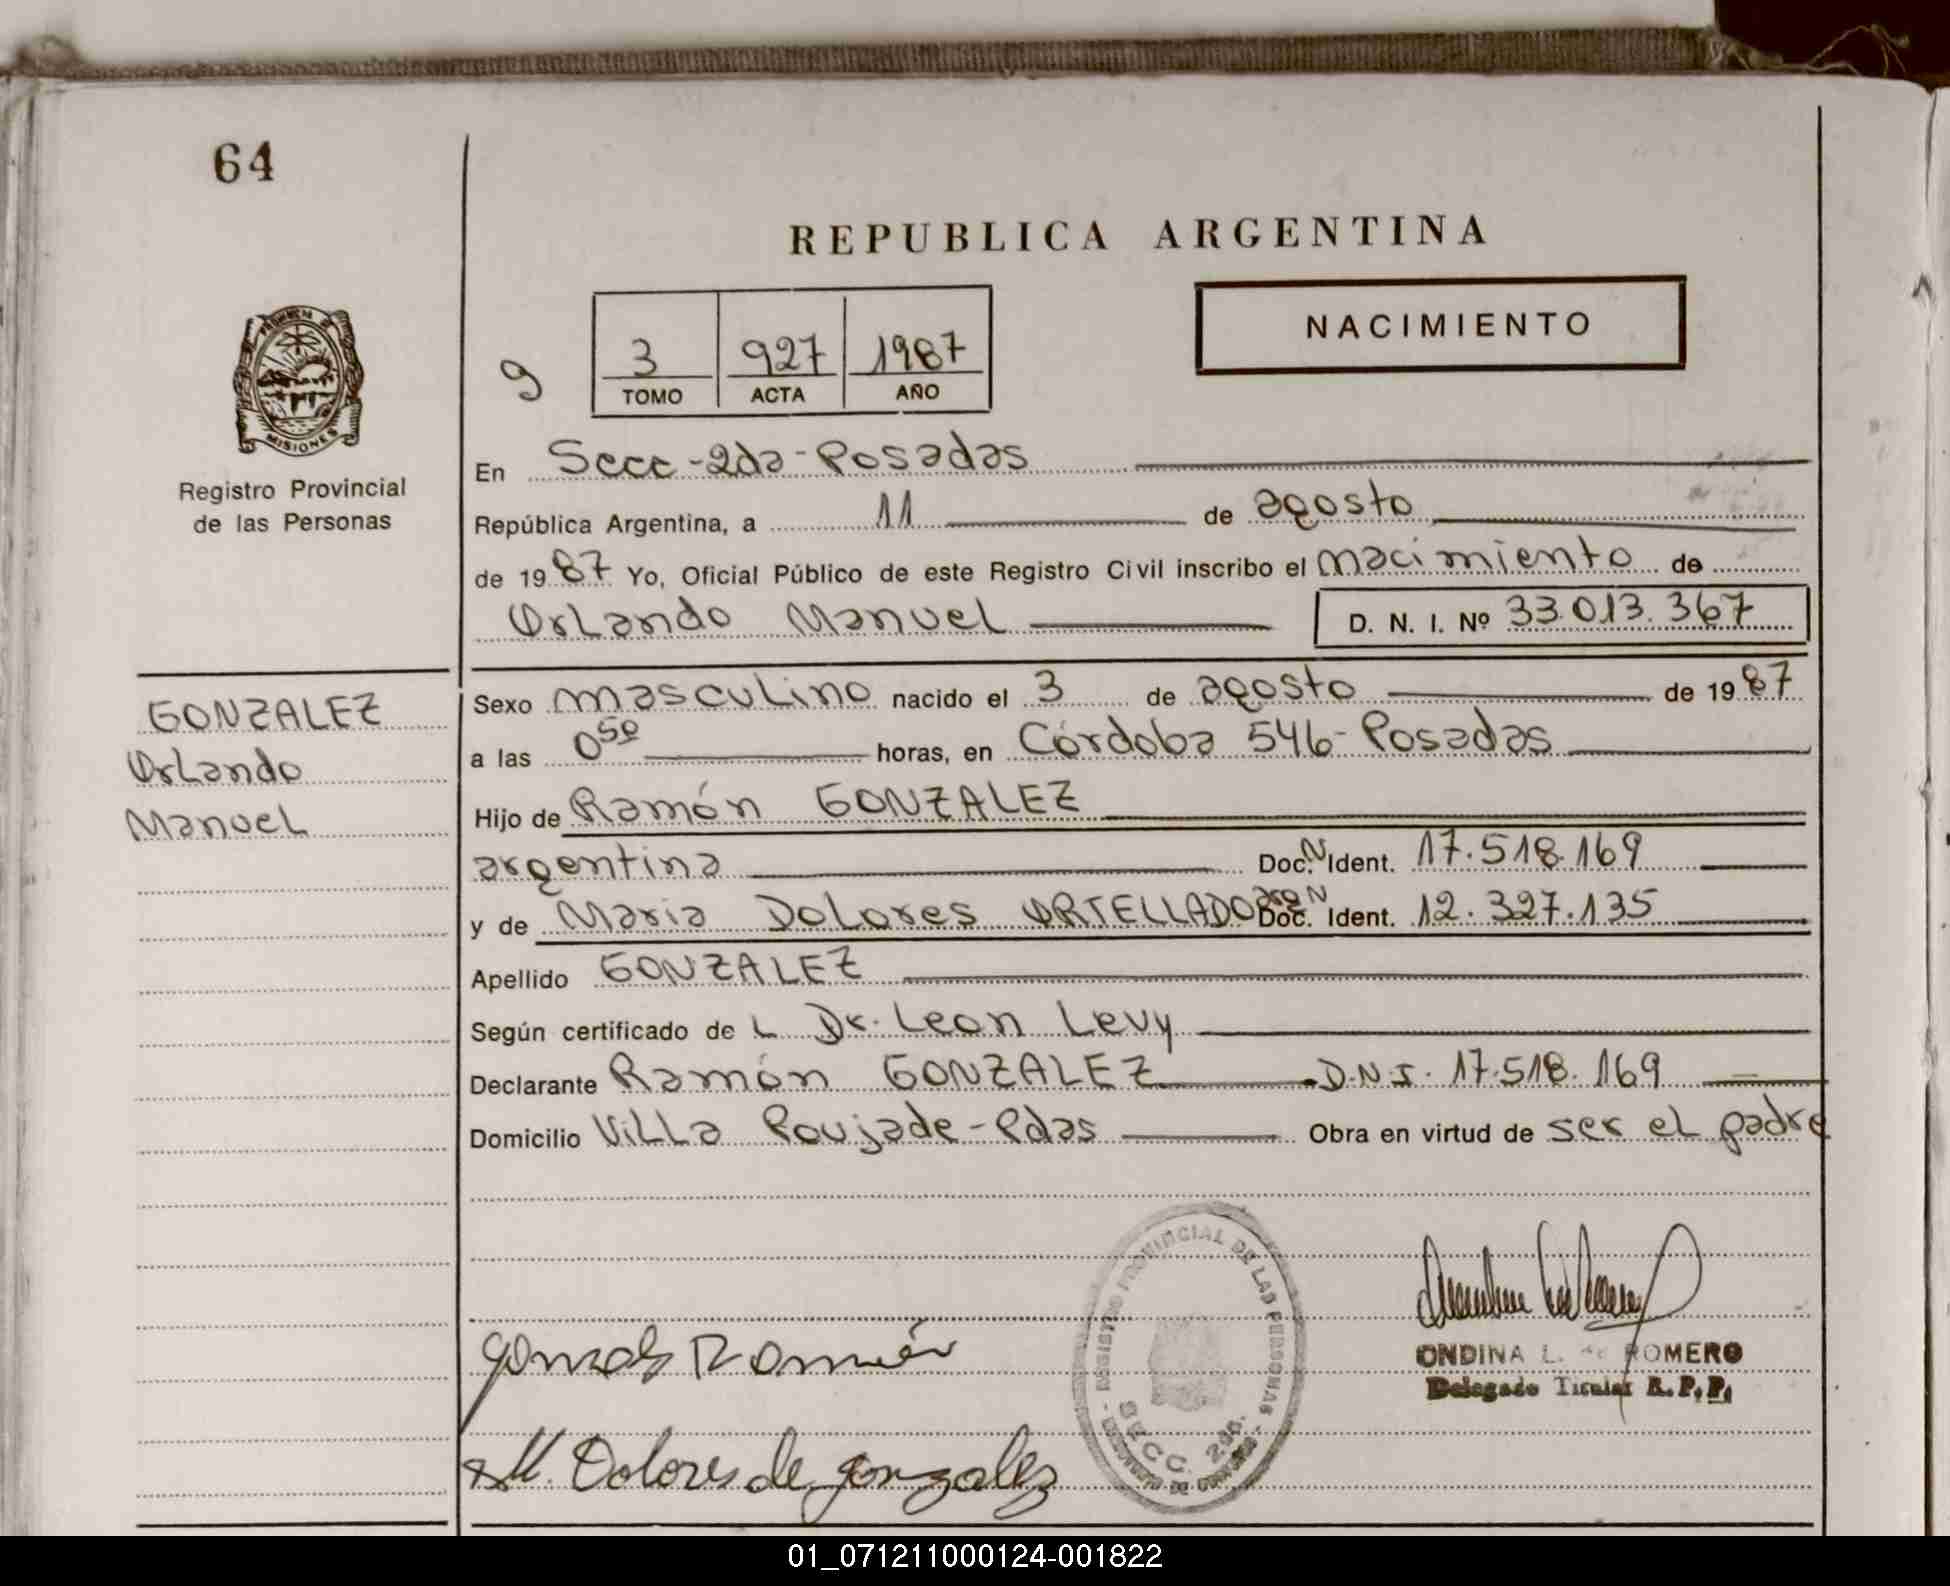 64
REPUBLICA ARGENTINA
NACIMIENTO
9
3 927 1987
TOMO ACTA AÑO
PROVINCIA DE MISIONES
Registro Provincial
de las Personas
En Secc-2da-Posadas
República Argentina, a 11 de agosto
de 1987 Yo, Oficial Público de este Registro Civil inscribo el nacimiento de
Orlando Manuel D. N. I. Nº 33.013.367
GONZALEZ
Orlando
Manuel
Sexo masculino nacido el 3 de agosto de 1987
a las 0⁵⁰ horas, en Córdoba 546-Posadas
Hijo de Ramón GONZALEZ
argentina Doc. N Ident. 17.518.169
y de Maria Dolores ORTELLADO arg Doc. N Ident. 12.327.135
Apellido GONZALEZ
Según certificado de L Dr. Leon Levy
Declarante Ramón GONZALEZ D.N.I. 17.518.169
Domicilio Villa Poujade-Pdas Obra en virtud de ser el padre
REGISTRO PROVINCIAL DE LAS PERSONAS
SECC. 2da.
ONDINA L. de ROMERO
Delegado Titular R.P.P.
Gonzalez Ramón
M. Dolores de gonzalez
01_071211000124-001822